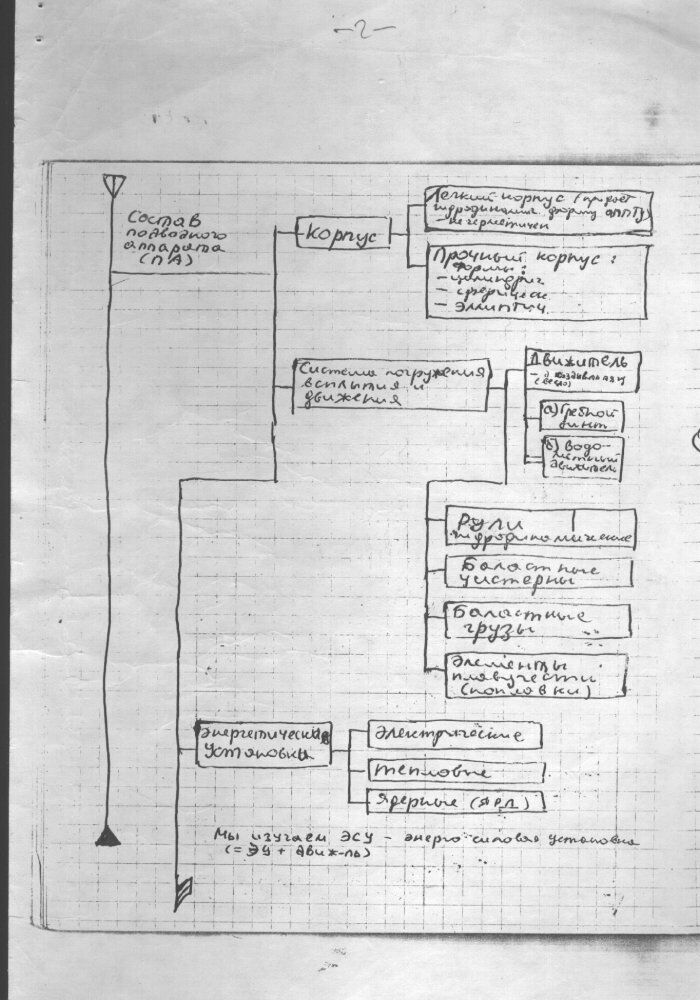 -2-
Состав
подводного
аппарата
(ПА)
Корпус
Легкий корпус (придает
гидродинамич. форму
негерметичен
Прочный корпус:
формы:
- цилиндрич
- сферическ
- эллиптич
Система погружения
всплытия и
движения
Движитель
а) Гребной
винт
б) Водо-
метный
движитель
Рули
гидродинамические
Баластные
цистерны
Баластные
грузы
Элементы
плавучести
(поплавки)
Энергетические
установки
Электрические
тепловые
Ядерные (ЯРД)
Мы изучаем ЭСУ - энерго-силовая установка
(= ЭУ + движ-ль)